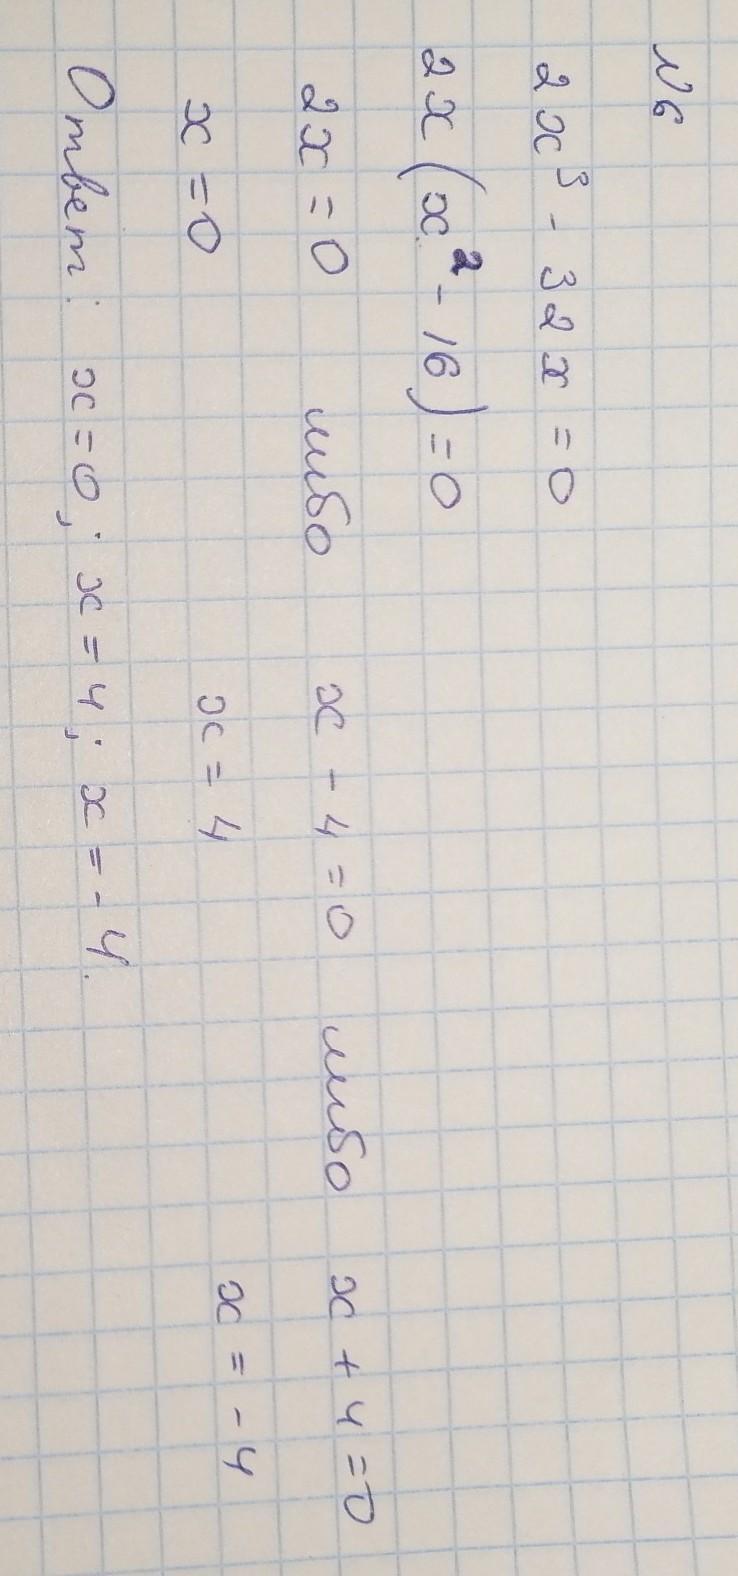 №6
2x³ - 32x = 0
2x(x² - 16) = 0
2x = 0 либо x - 4 = 0 либо x + 4 = 0
x = 0 x = 4 x = - 4
Ответ: x = 0; x = 4; x = - 4.